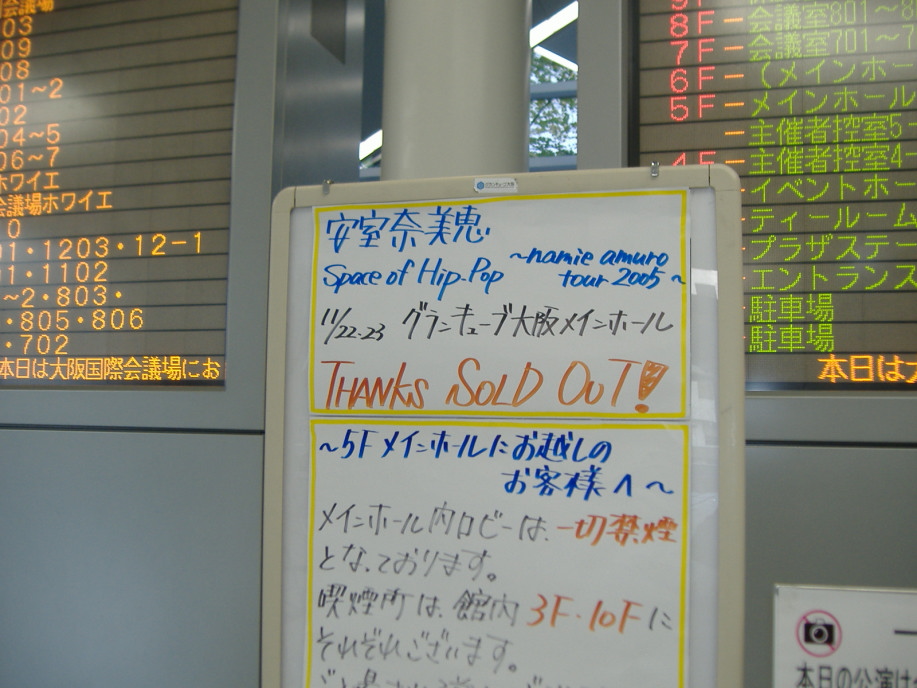 会議場
03
09
08
01~2
02
04~5
06~7
ホワイエ
会議場ホワイエ
0
1・1203・12-1
1・1102
~2・803・
・805・806
・702
本日は大阪国際会議場にお
安室奈美恵
Space of Hip-Pop ~namie amuro tour 2005~
11/22・23 グランキューブ大阪メインホール
THANKS SOLD OUT!
~5Fメインホールにお越しの
お客様へ~
メインホール内ロビーは、一切禁煙
となっております。
喫煙所は、館内3F・10Fに
それぞれございます。
8F-会議室801~8
7F-会議室701~7
6F-(メインホー
5F-メインホール
-主催者控室5-
4F-主催者控室4-
-イベントホー
ティールーム
プラザステー
エントランス
駐車場
駐車場
本日は大
本日の公演は